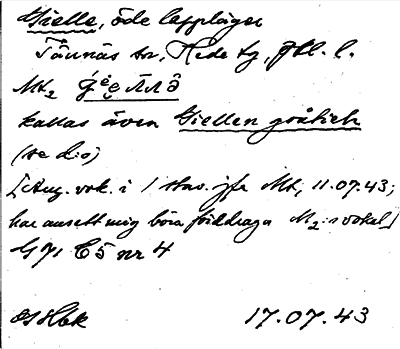 Gielle, öde lappläger
Tännäs sn, Hede tg, Jtl. l.
Mt₂
kallas även Giellen gråtieh
(se d:o)
[Ang. vok. i 1 stav. jfr Mt, 11.07.43;
har ansett mig böra föredraga M₂:s vokal]
GJ1 C5 nr 4
OSHbk 17.07.43